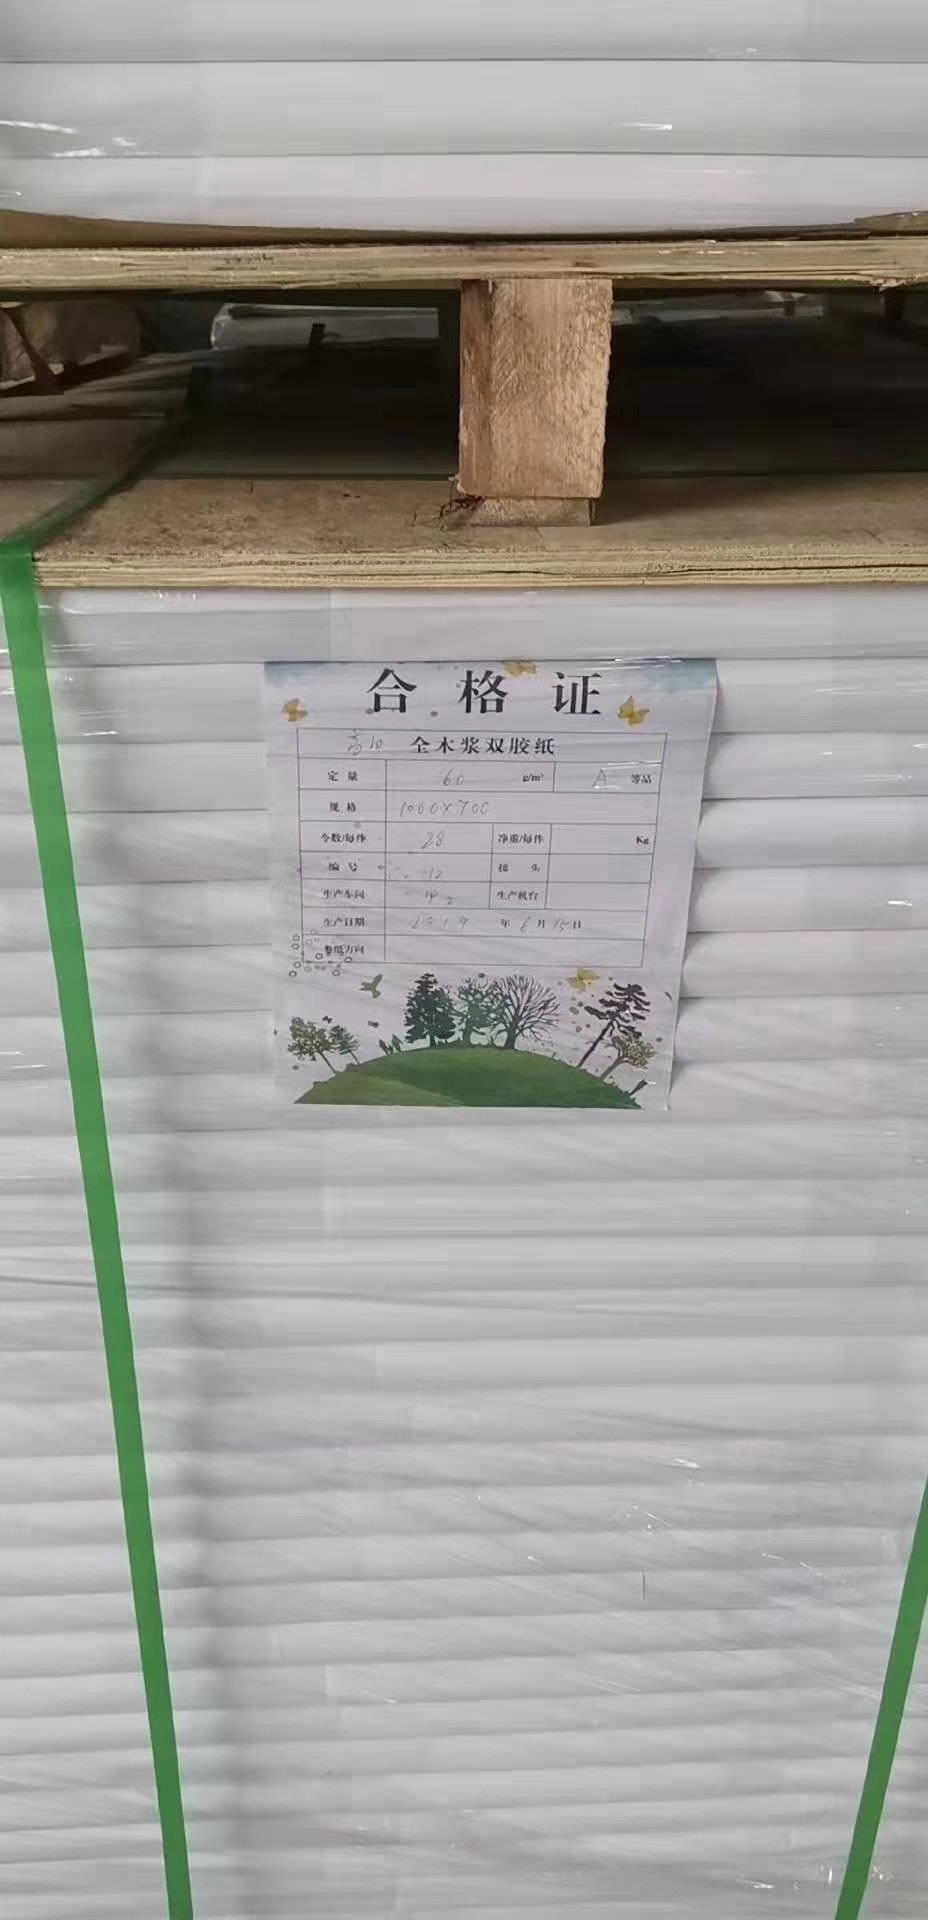 合格证
高白 全木浆双胶纸
定量 60 g/m² A 等品
规格 1000×700
令数/每件 28 净重/每件 Kg
编号 12 接头
生产车间 生产机台
生产日期 2019 年 6 月 15 日
卷纸方向